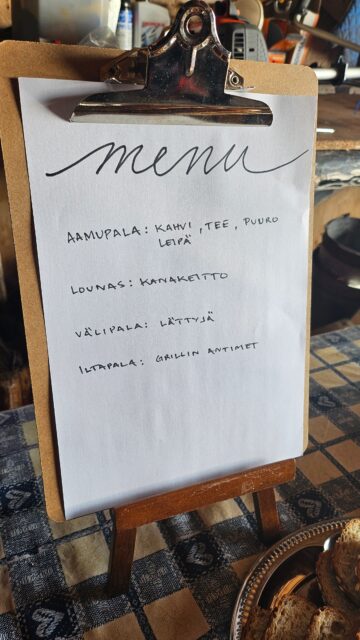 menu
AAMUPALA: KAHVI, TEE, PUURO
LEIPÄ
LOUNAS: KANAKEITTO
VÄLIPALA: LÄTTYJÄ
ILTAPALA: GRILLIN ANTIMET